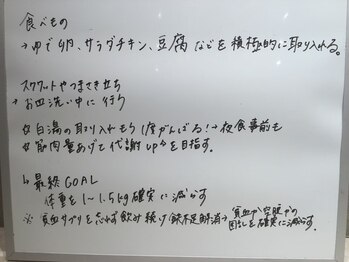 食べもの
→ゆで卵、サラダチキン、豆腐などを積極的に取り入れる。
スクワットやつまさき立ち
→お皿洗い中に行う
☆白湯の取り入れもう1度がんばる!→夜食事前も
☆筋肉量あげて代謝upを目指す。
↳最終GOAL
体重を1〜1.5kg確実に減らす
※貧血サプリを忘れず飲み続け鉄不足解消→貧血か空腹かの
困惑を確実に減らす。